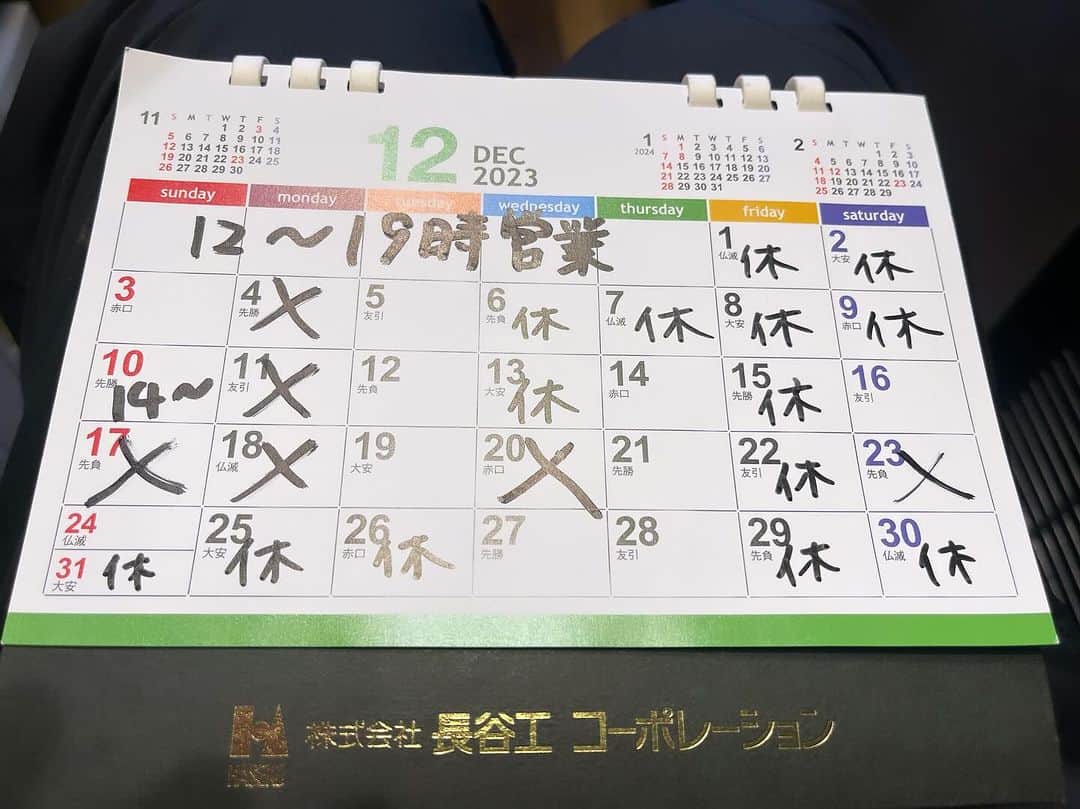 11
S M T W T F S
1 2 3 4
5 6 7 8 9 10 11
12 13 14 15 16 17 18
19 20 21 22 23 24 25
26 27 28 29 30
12
DEC
2023
1
2024
S M T W T F S
1 2 3 4 5 6
7 8 9 10 11 12 13
14 15 16 17 18 19 20
21 22 23 24 25 26 27
28 29 30 31
2
S M T W T F S
1 2 3
4 5 6 7 8 9 10
11 12 13 14 15 16 17
18 19 20 21 22 23 24
25 26 27 28 29
sunday monday tuesday wednesday thursday friday saturday
12〜19時営業
1 仏滅 休 2 大安 休
3 赤口 4 先勝 × 5 友引 6 先負 休 7 仏滅 休 8 大安 休 9 赤口 休
10 先勝 14〜 11 友引 × 12 先負 13 大安 休 14 赤口 15 先勝 休 16 友引
17 先負 × 18 仏滅 × 19 大安 20 赤口 × 21 先勝 22 友引 休 23 先負 ×
24 仏滅 25 大安 休 26 赤口 休 27 先勝 28 友引 29 先負 休 30 仏滅 休
31 大安 休
株式会社 長谷工 コーポレーション